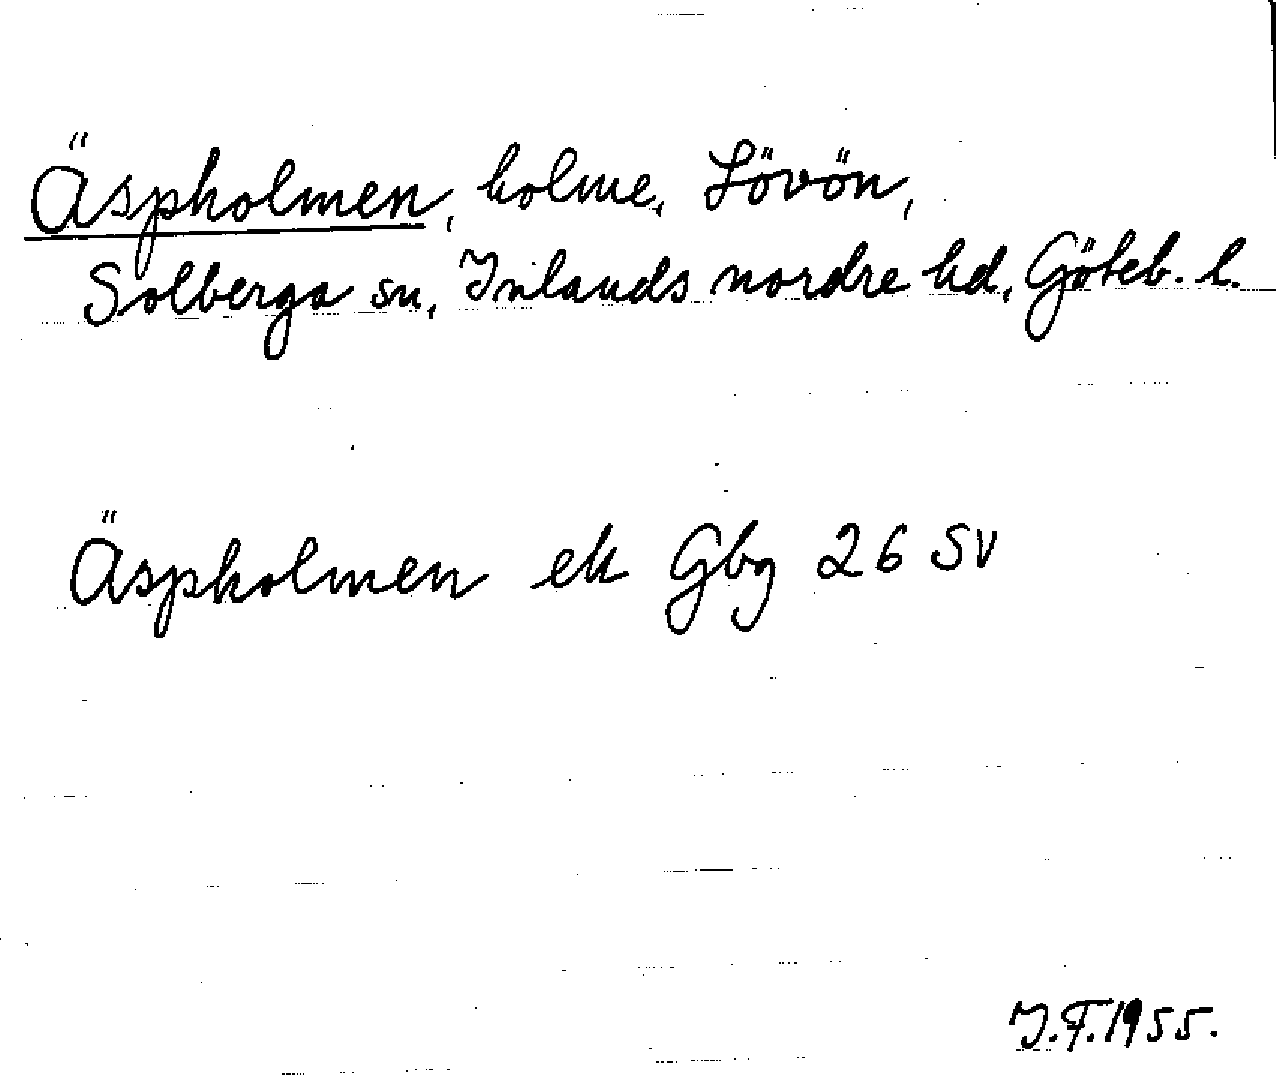 Äspholmen, holme, Lövön,
Solberga sn, Inlands nordre hd, Göteb. l.
Äspholmen ek Gbg 26 SV
J.F. 1955.